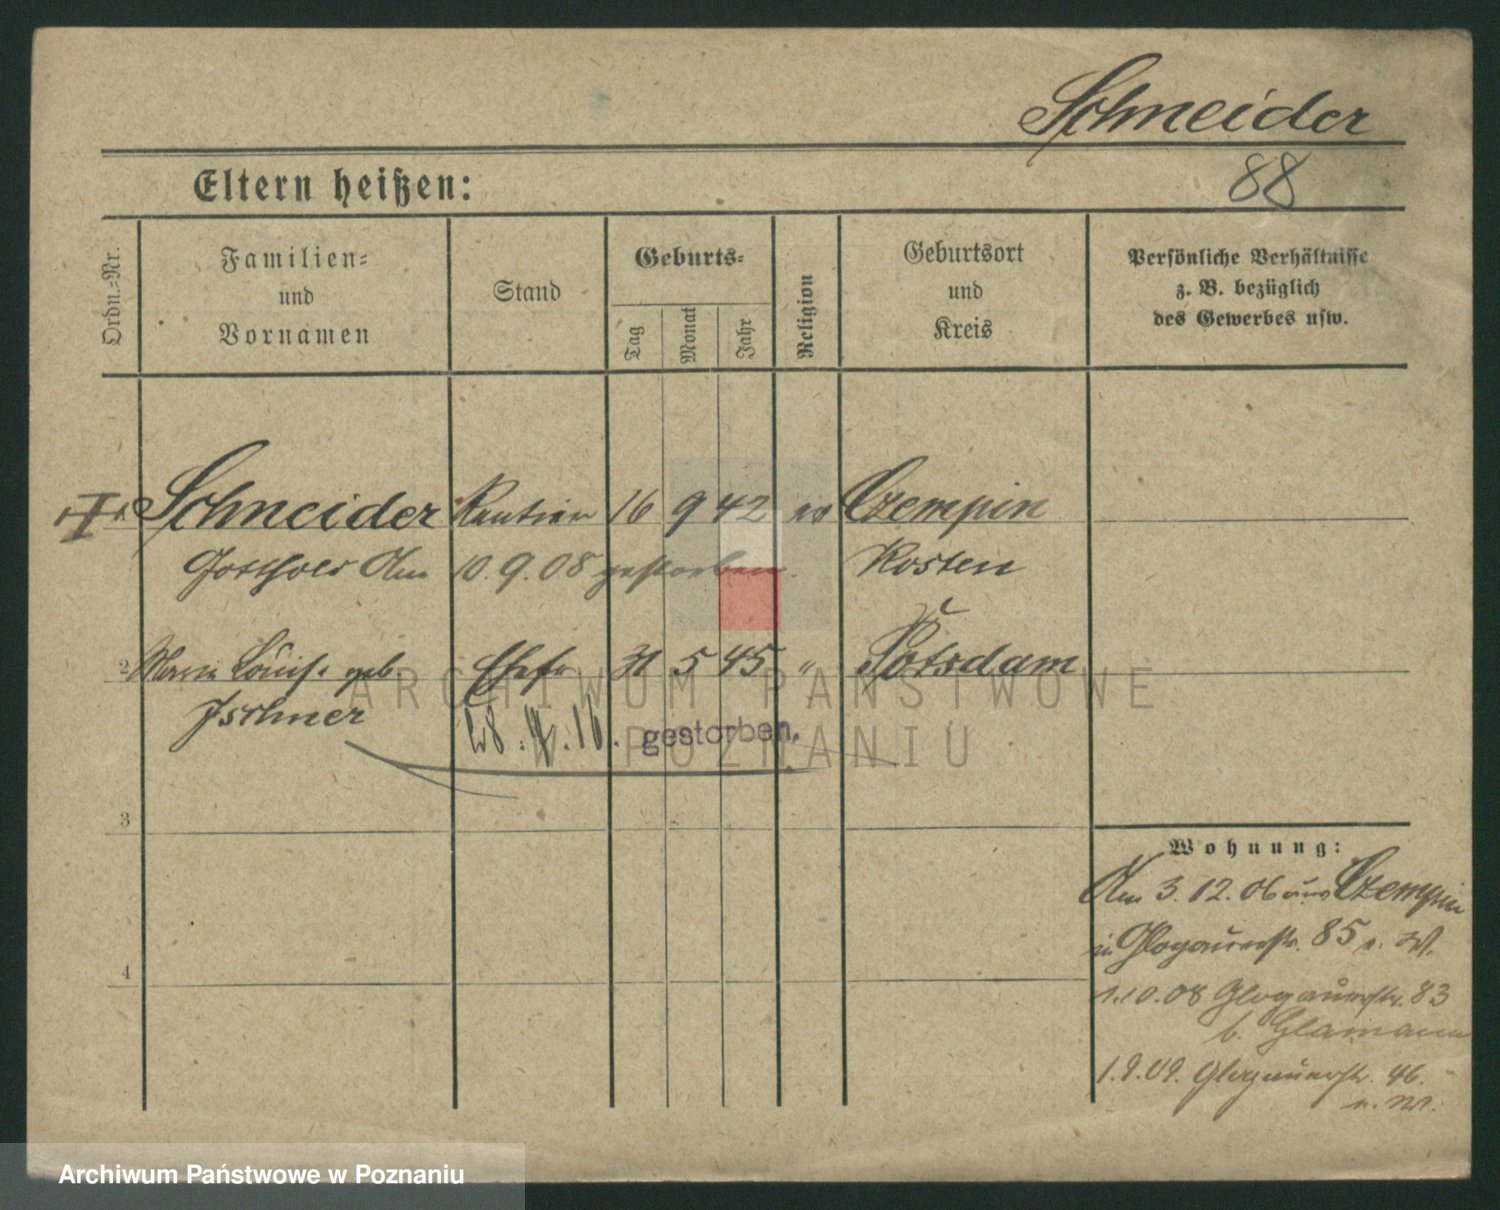 Schneider
88
Eltern heißen:
Ordn.-Nr.
Familien-
und
Vornamen
Stand
Geburts-
Tag
Monat
Jahr
Religion
Geburtsort
und
Kreis
Persönliche Verhältnisse
z. B. bezüglich
des Gewerbes usw.
Schneider Rentier 16 9 42 ev Czempin
Gotthold Am 10.9.08 gestorben. Kosten
2 Marie Louise geb Ehefr 31 5 45 " Potsdam
28. . 16. gestorben.
3
4
Wohnung:
Am 3.12.06 aus Czempin
in Glogauerstr. 85 n. W.
1.10.08 Glogauerstr. 83
b. Glamann
1.9.09. Glogauerstr. 46.
n. W.
ARCHIWUM PAŃSTWOWE
W POZNANIU
Archiwum Państwowe w Poznaniu